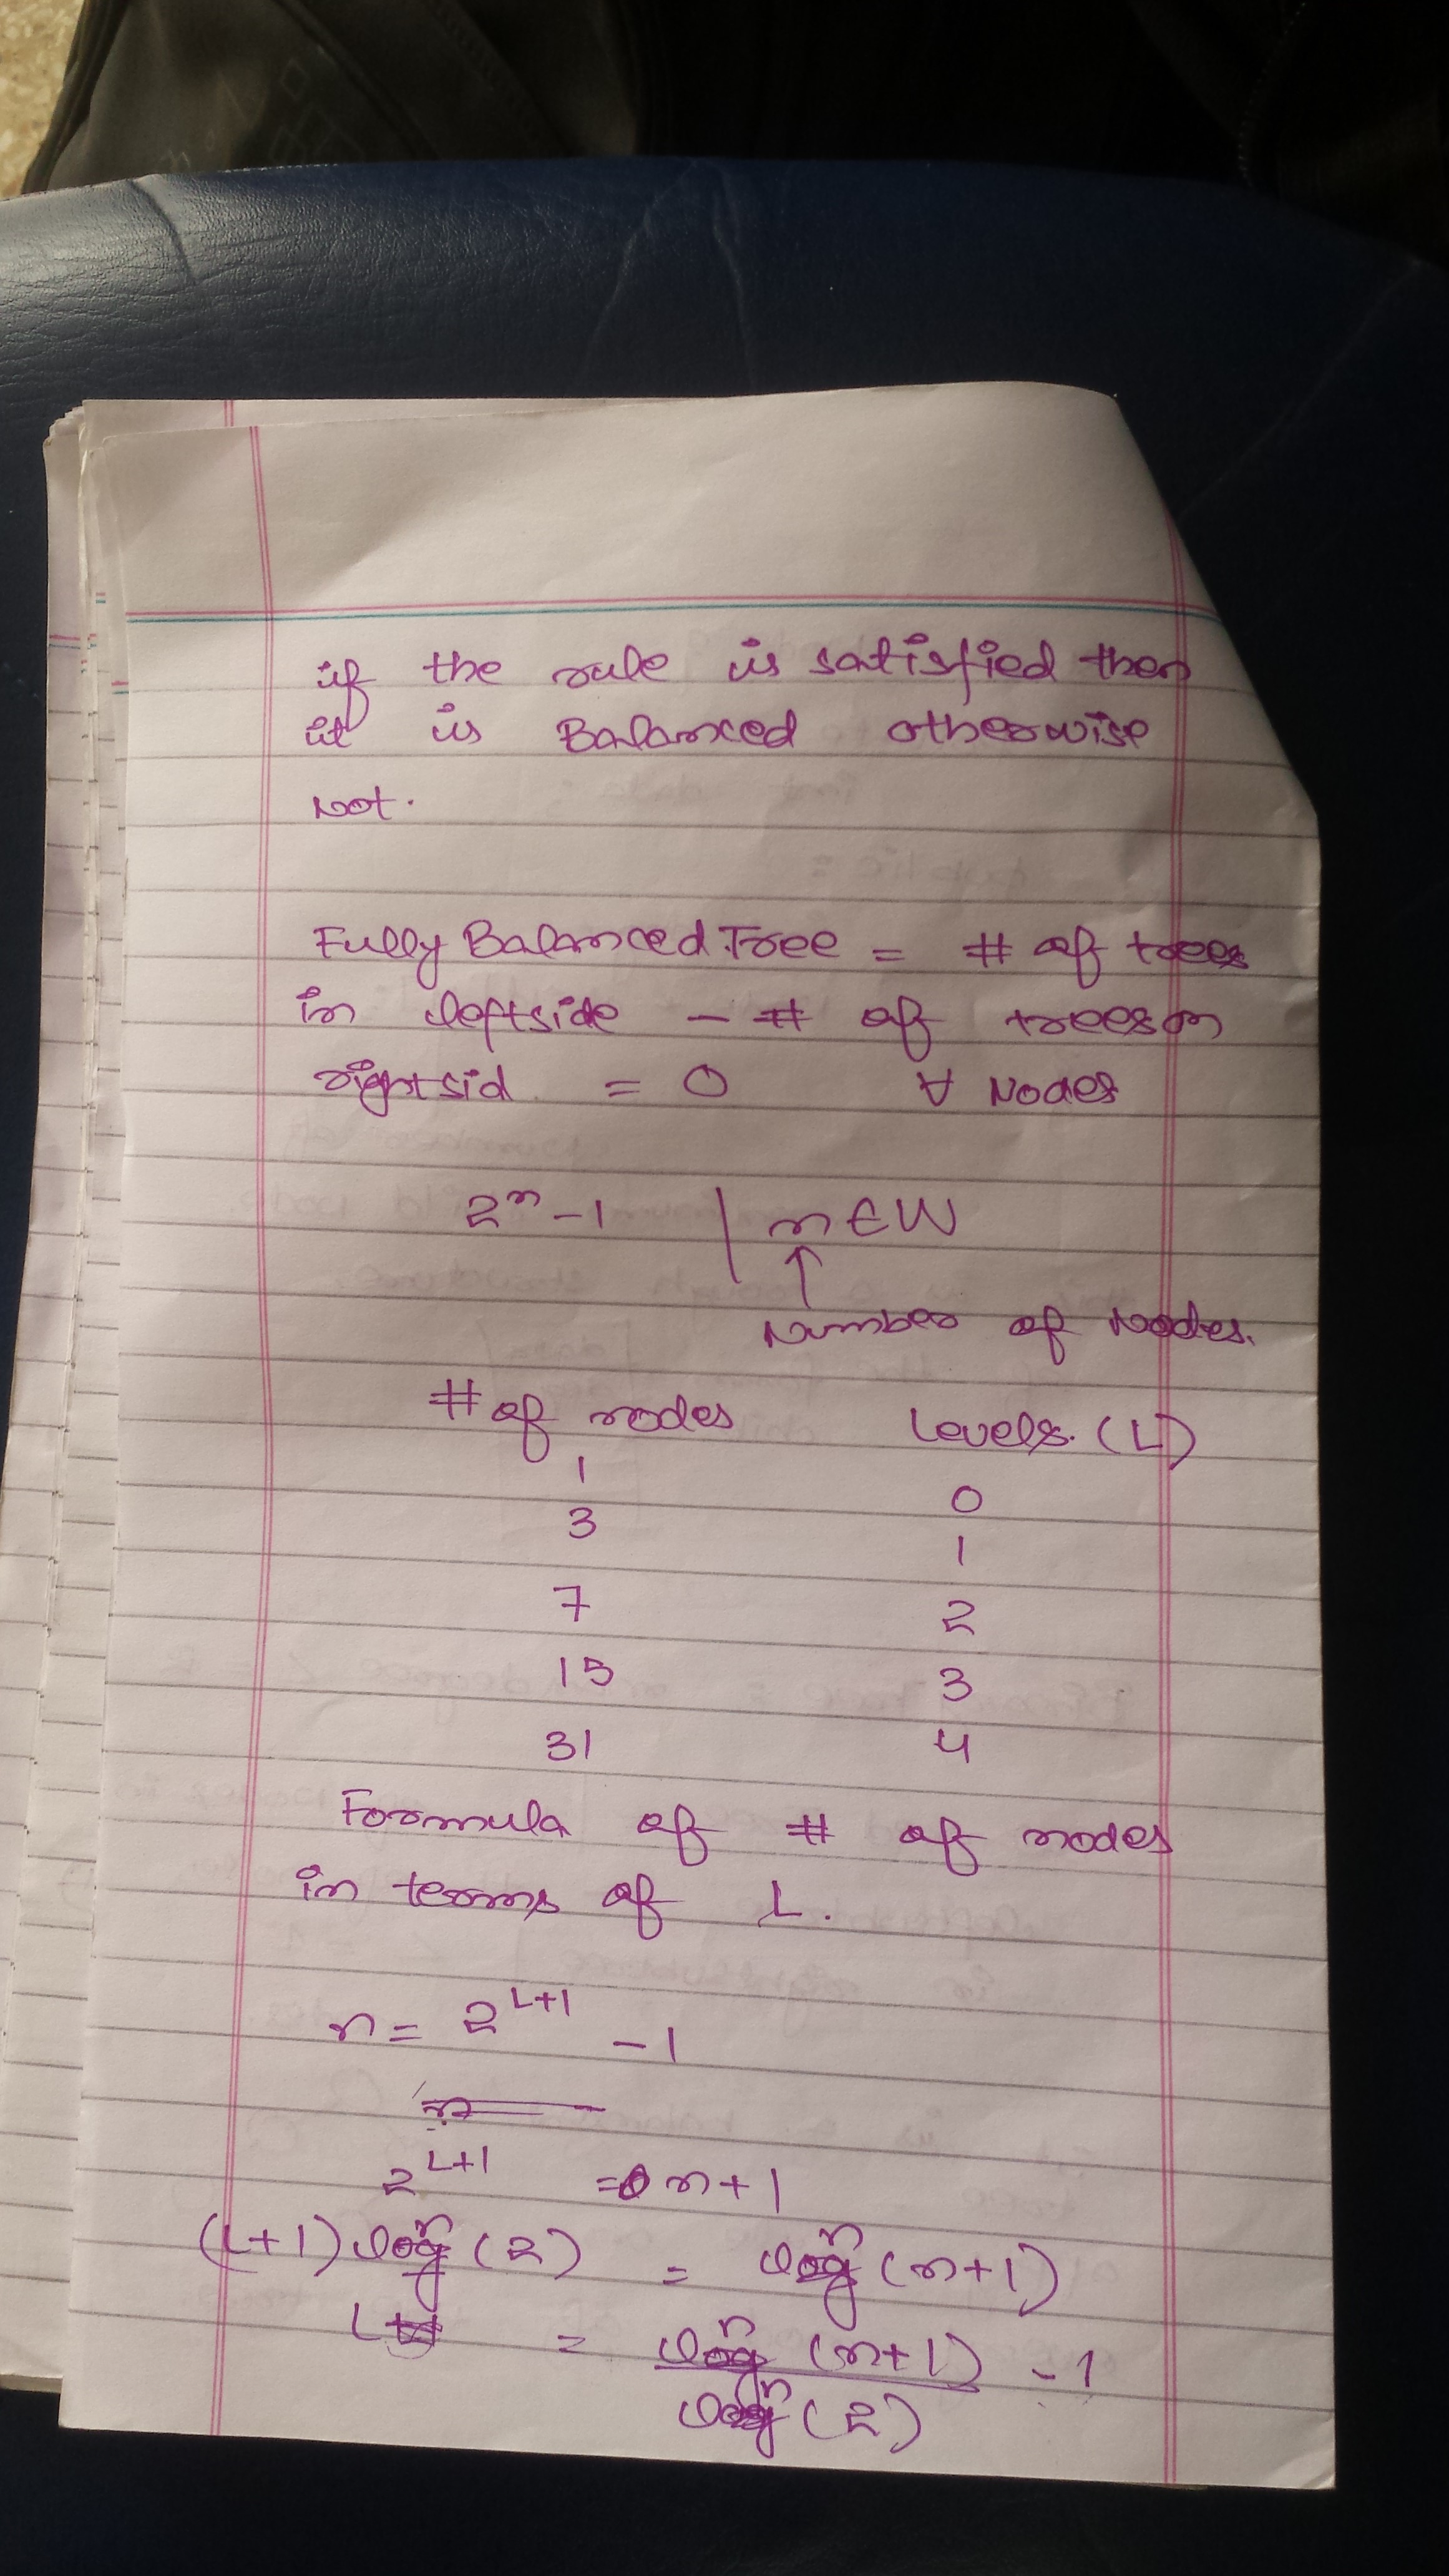 if the rule is satisfied then
it is Balanced otherwise
Not.
Fully Balanced Tree = # of trees
in leftside - # of trees on
rightsid = 0 ∀ Nodes
2^n - 1 | n ∈ W
↑
Number of Nodes.
# of nodes Levels. (L)
1 0
3 1
7 2
15 3
31 4
Formula of # of nodes
in terms of L.
n = 2^{L+1} - 1
2^{L+1} = n + 1
(L+1) ln (2) = ln (n+1)
L = ln (n+1) / ln (2) - 1